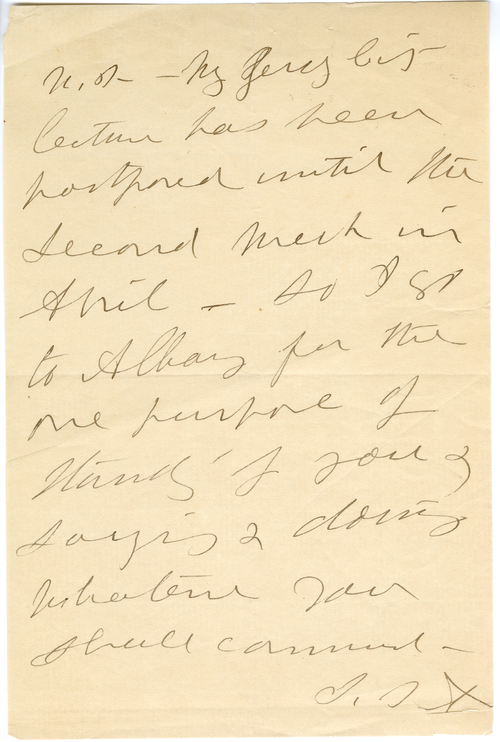 N.B. — My Jersey City
lecture has been
postponed until the
second week in
April — so I go
to Albany for the
one purpose of
standg by you &
saying & doing
whatever you
shall command —